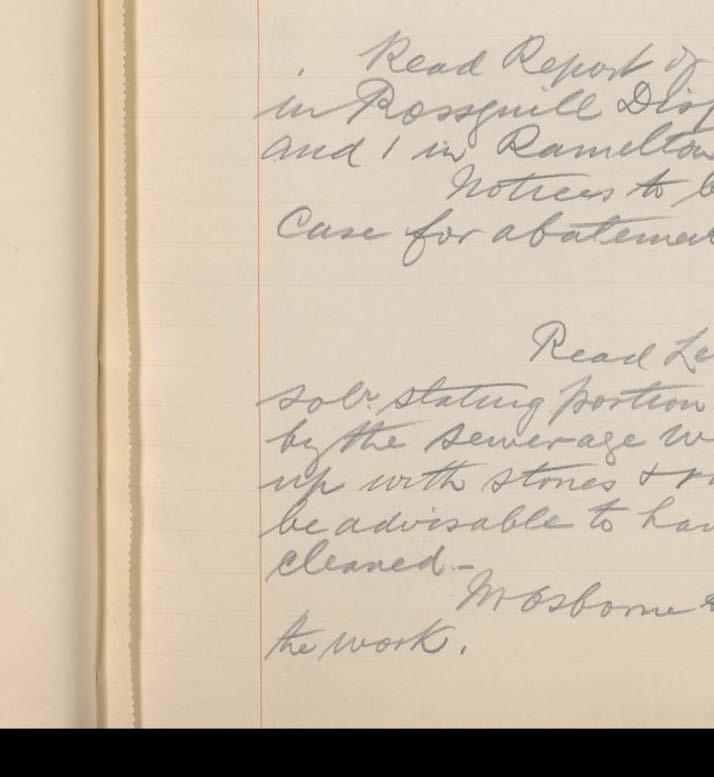 Read Report of
in Rossguill Disp
and 1 in Ramelton
Notices to b
Case for abatemen
Read Le
solr. stating portion
by the Sewerage w
up with stones &
be advisable to hav
cleaned -
Mr Osborne
the work.